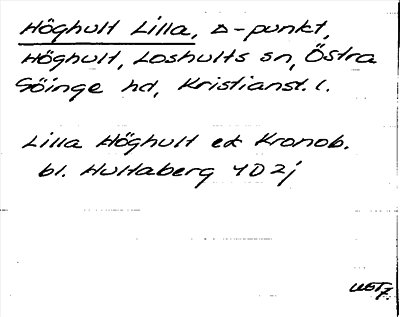 Höghult Lilla, Δ-punkt,
Höghult, Loshults sn, Östra
Göinge hd, Kristianst. l.
Lilla Höghult ek Kronob.
bl. Hultaberg 4D2j